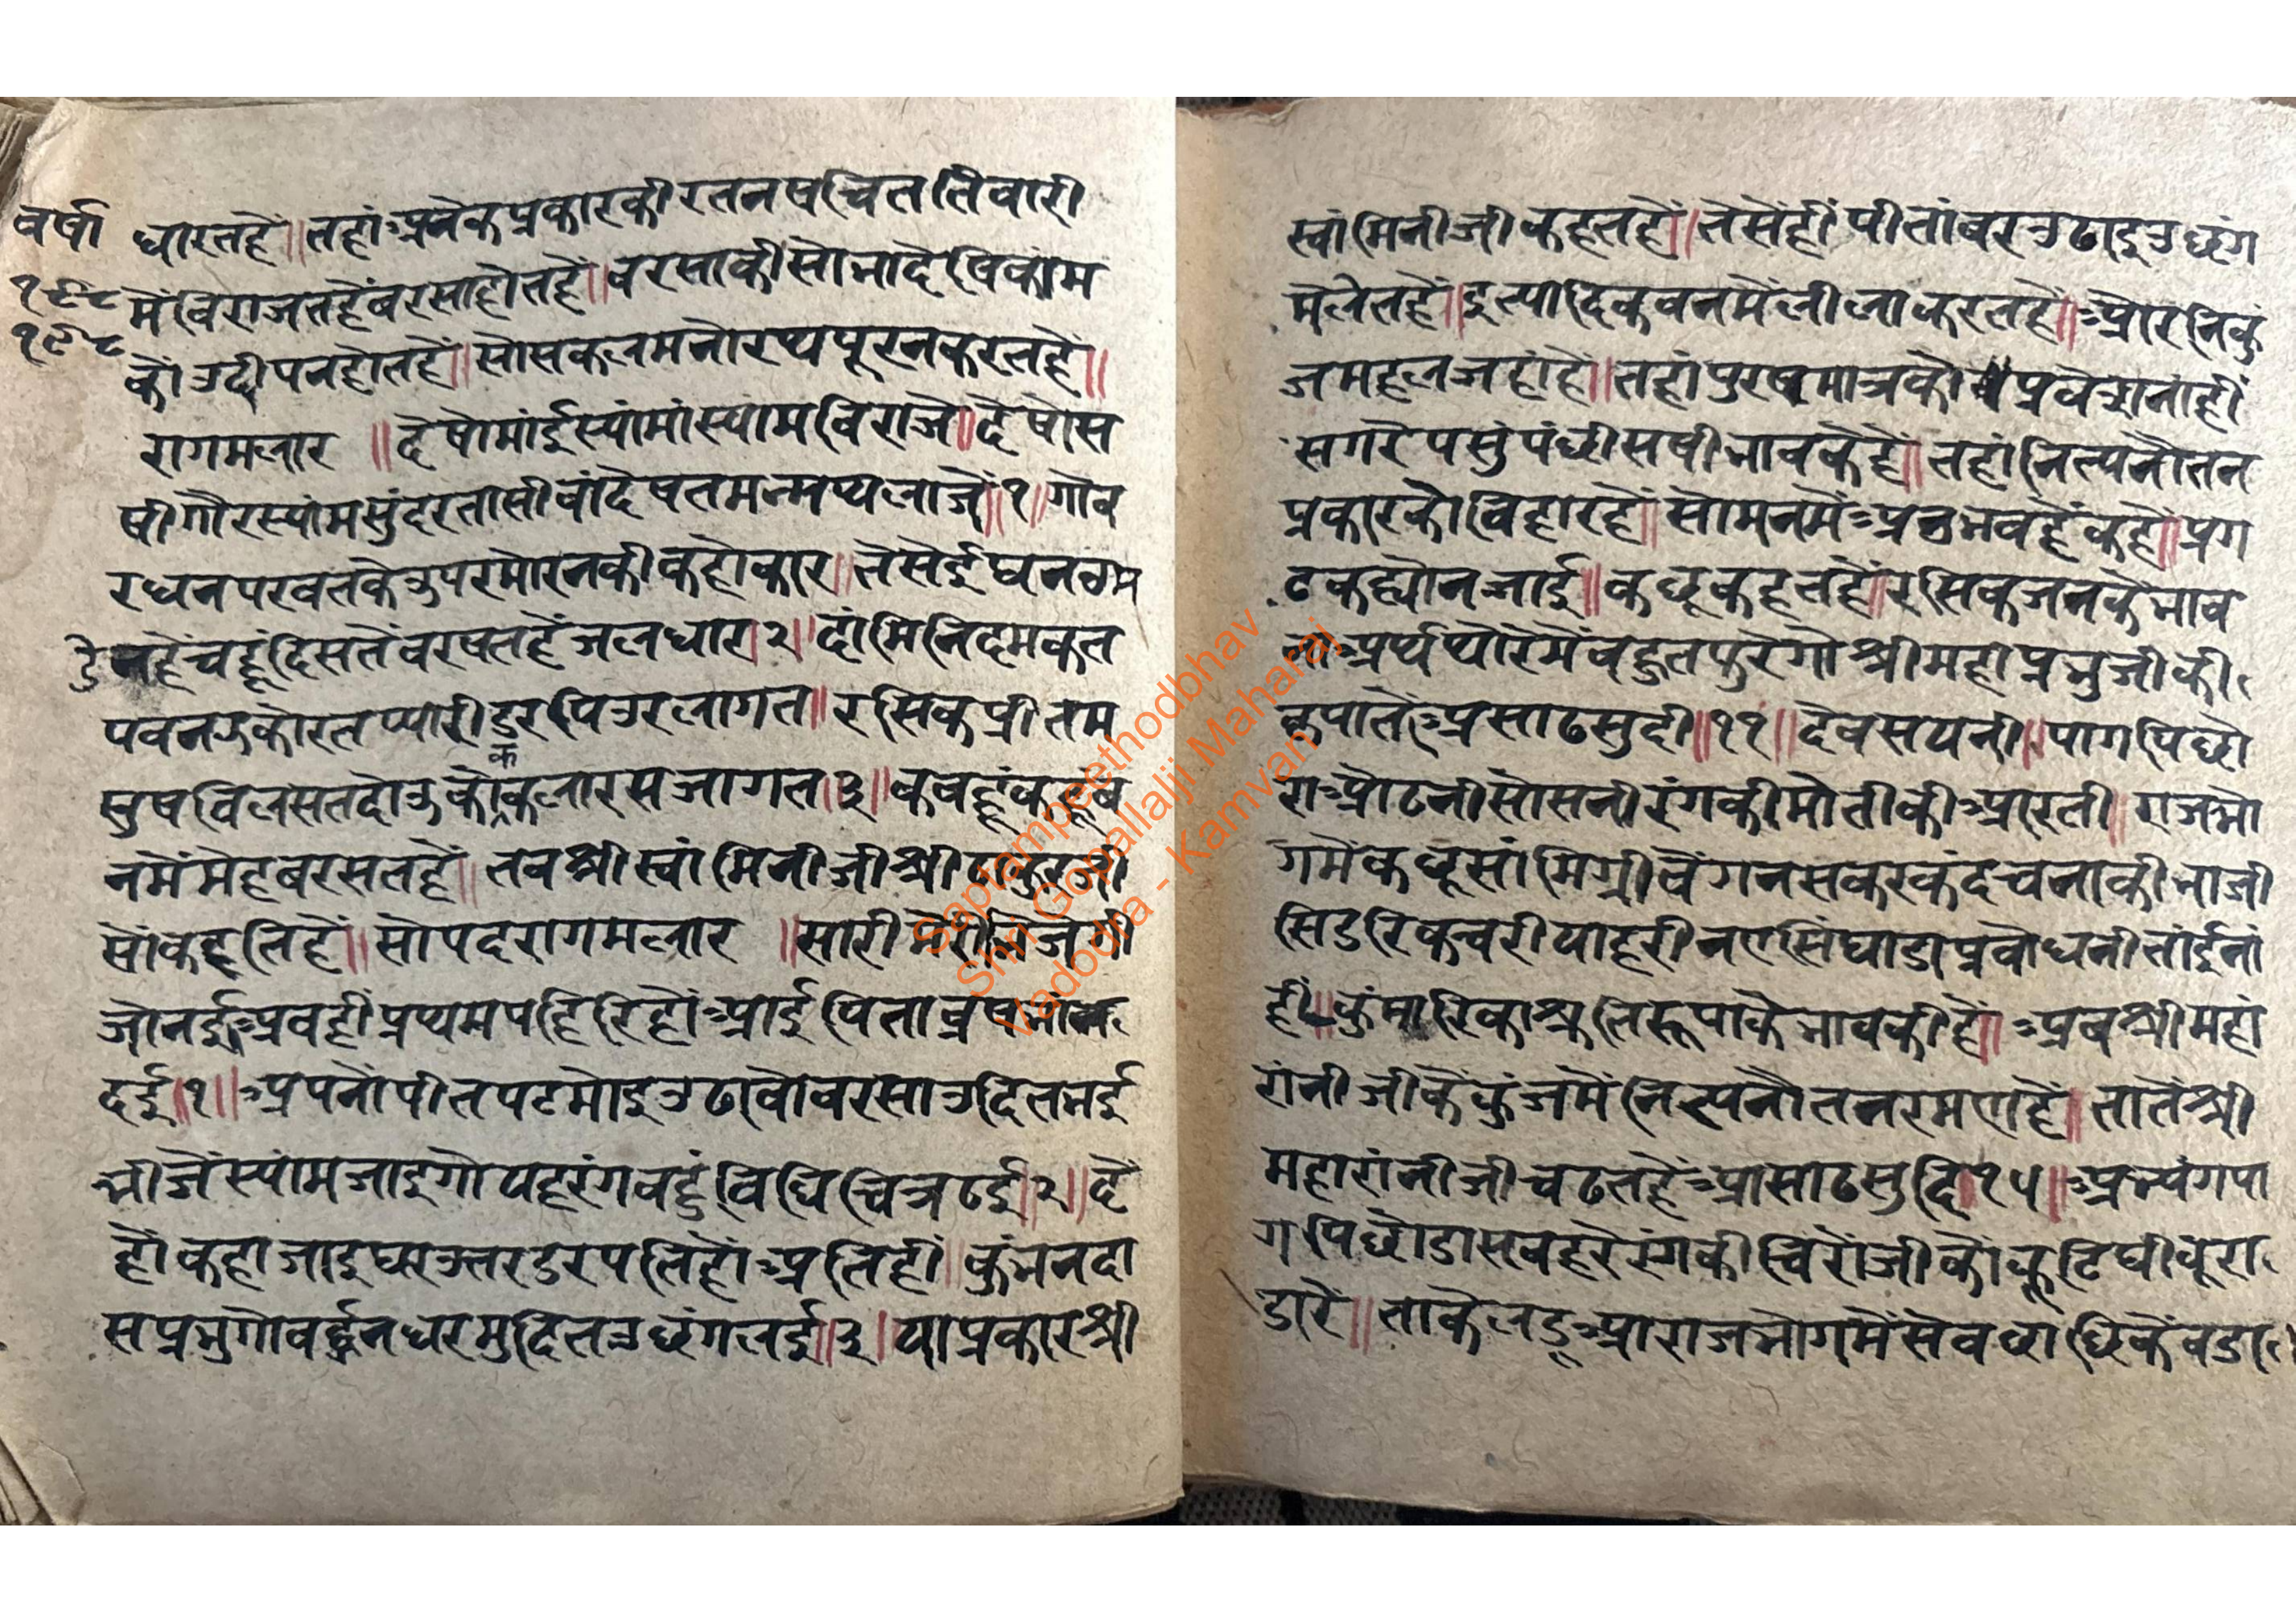 वर्षा
१९८
१९८
धारतहैं॥तहांअनेकप्रकारकीरतनषचिततिवारी
मैंविराजतहैंबरसाहोतहैं॥बरसाकीसोभादेषिकांम
कौंउदीपनहोतहैं॥सोसकलमनोरथपूरनकरतहैं॥
रागमलार ॥देषोमांईस्यांमांस्यामविराजे॥देषोस
षीगौरस्यांमसुंदरतासीवांदेषतमन्मथलाजें॥१॥गोव
रधनपरवतकेउपरमोरनकीकहोकार॥तेसेईघनगम
डेनहैंचहूंदिसतेंवरषतहैंजलधार।२।दांमिनिदमकत
पवनझकोरतप्यारीडुरपिउरलागत॥रसिकप्रीतम
सुषविलसतदोउकोककलारसजागत।३॥कबहूंकहूंब
नमेंमेहबरसतहैं॥तबश्रीस्वांमिनीजीश्रीठाकुरजी
सोंकहतिहैं॥सोपदरागमलार ॥सारीमेरीभिजत
जोनईअबहींप्रथमपहिरिहोंआईपिताव्रषभांन
दई॥१॥अपनोंपीतपटमोइउढावोवरसाउदितभई
भीजेंस्यांमजाइगोयहरंगवहुंविधिचित्रठई॥२॥दै
होंकहाजाइघरउत्तरडरपतिहोंअतिहीं॥कुंभनदा
सप्रभुगोवर्द्धनधरमुदितउछंगलई॥३॥याप्रकारश्री
स्वांमिनीजीकहतहैं॥तेसेंहींपीतांबरउढाइउछंग
मेलेतहैं॥इत्यादिकवनमेंलीलाकरतहैं॥औरनिकुं
जमहलजहांहें॥तहांपुरषमात्रकोप्रवेसनांहीं
सगरेपसुंपंछीसषीभावकेहें॥तहांनित्यनौतन
प्रकारकोविहारहैं॥सोमनमेंअनुभवहैंकहो॥प्रग
टकह्योनजाई॥कछूकहतहैं॥रसिकजनकेभाव
तोअर्थथोरेमेंबहुतपुरेगोश्रीमहाप्रभुजीकी
क्रपातेंअसाढसुदी॥११॥देवसयनी॥पागपिछो
राओढनीसोसनीरंगकीमोतीकीआरती॥राजभो
गमेंकछूसांमिग्रीवेंगनसकरकंदचनाकीभाजी
सिडरिकन्वरीयाहरीनएसिंघाडाप्रबोधनीतांईनां
हीं॥कुंमारिकाश्रुतिरूपाकेभावकीहें॥अबश्रीमहां
रांनीजीकेंकुंजमेंनित्यनौतनरमणहैं॥तातेंश्री
महारांनीजीचढतहेंआसाढसुदि॥१५॥अभ्यंगपा
गपिछोडासबहरेरंगकीचिरोंजीकोंकूटिघीबूरा
डारें॥ताकेलडूआराजभोगमेंसेवधाछिकेंवडा